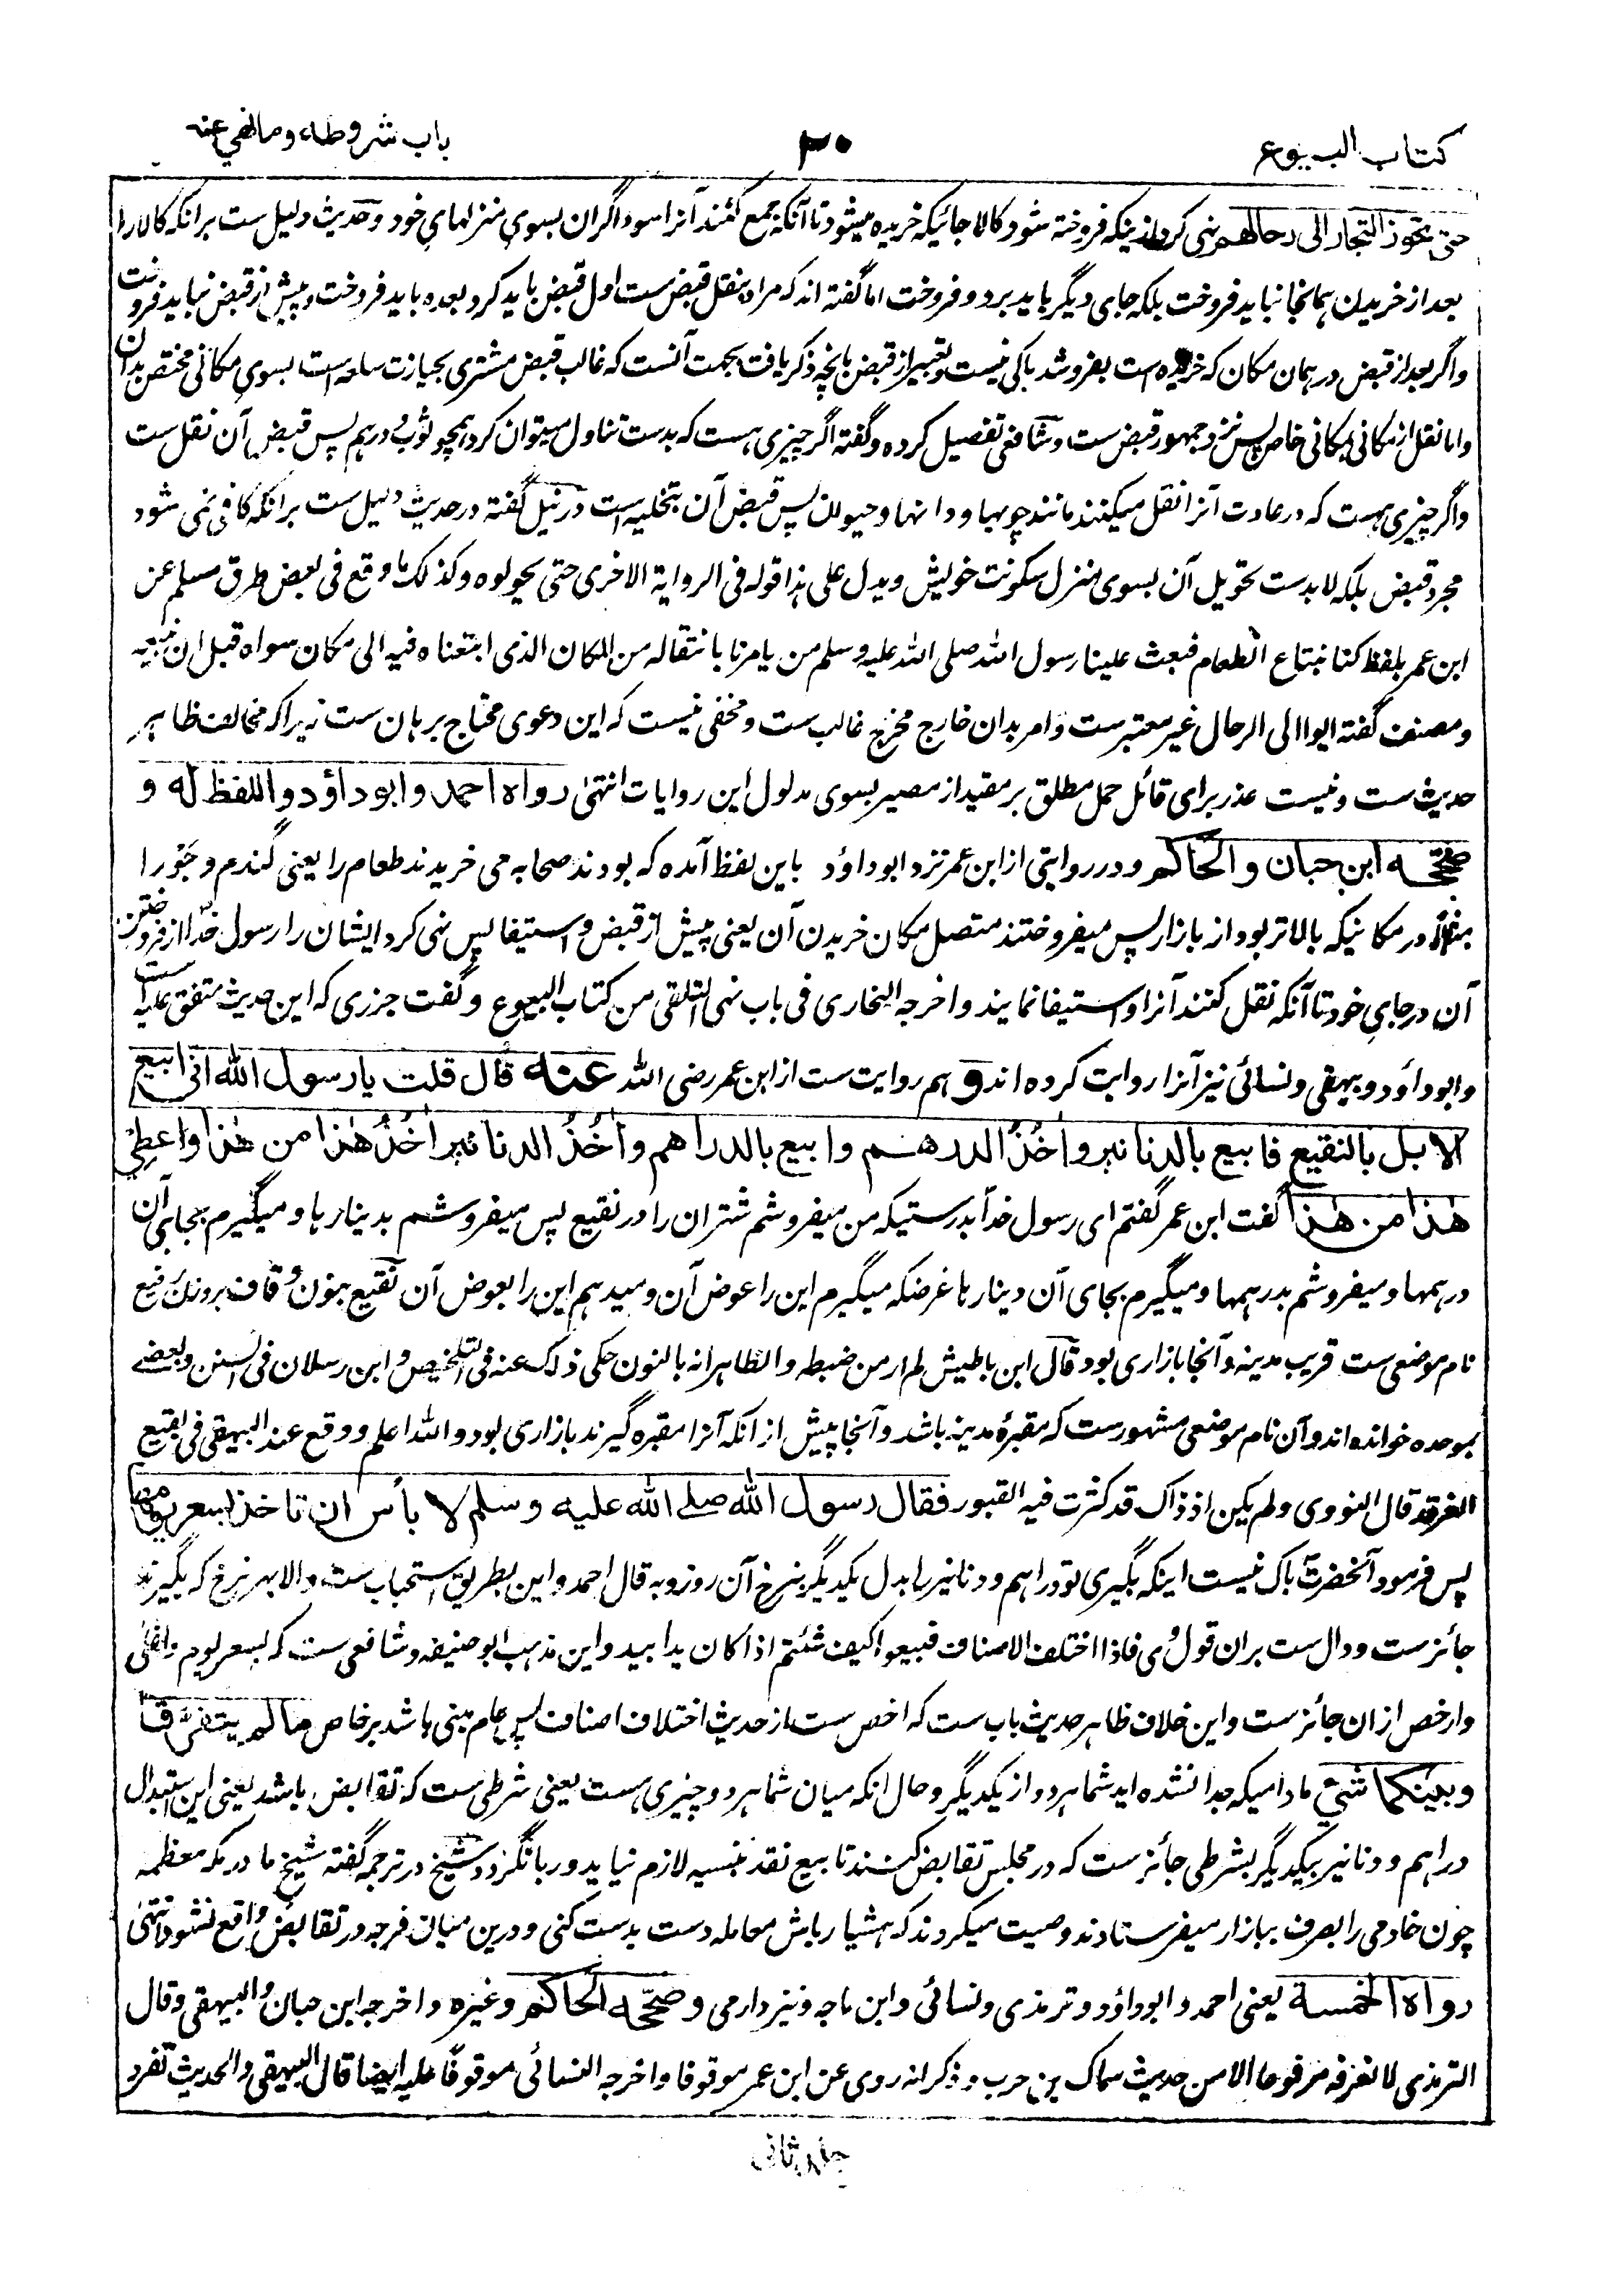 كتاب البيوع
۳۰
باب شروطه وما نهي عنه
حتى يحوز التجار الى رحالهم نهی کرد ازینکه فروخته شود کالا جائیکه خریده میشود تا آنکه جمع کنند آنرا سوداگران بسوی منزلهای خود و حدیث دلیل ست برانکه کالا را
بعد از خریدن همانجا نباید فروخت بلکه جای دیگر باید برد و فروخت اما گفته اند که مراد بنقل قبض ست اول قبض باید کرد بعده باید فروخت و پیش از قبض نباید فروخت
واگر بعد از قبض در همان مکان که خریده است بفروشد باکی نیست و تعبیر از قبض بانچه ذکر یافت بجهت آنست که غالب قبض مشتری بحیازت سلعه است بسوی مکانی مختص بدان
واما نقل از مکانی بمکانی خاص پس نزد جمهور قبض ست و شافعی تفصیل کرده و گفته اگر چیزی هست که بدست تناول میتوان کرد همچو ثوب و درهم پس قبض آن نقل ست
واگر چیزی هست که در عادت آنرا نقل میکنند مانند چوبها و دانها و حیوان پس قبض آن بتخلیه است در نیل گفته در حدیث دلیل ست برانکه کافی نمی شود
مجرد قبض بلکه لابد ست تحویل آن بسوی منزل سکونت خویش ویدل علی هذا قوله فی الروایة الاخری حتی یحولوه وکذلک ما وقع فی بعض طرق مسلم عن
ابن عمر بلفظ کنا نبتاع الطعام فبعث علینا رسول الله صلی الله علیه وسلم من یامرنا بانتقاله من المکان الذی ابتعناه فیه الی مکان سواه قبل ان نبیعه
ومصنف گفته ایوا الی الرحال غیر معتبرست و امر بدان خارج مخرج غالب ست و مخفی نیست که این دعوی محتاج برهان ست زیراکه مخالف ظاهر
حدیث ست و نیست عذر برای قائل حمل مطلق بر مقید از مصیر بسوی مدلول این روایات انتهی رواه احمد وابو داؤد واللفظ له و
صححه ابن حبان والحاکم و در روایتی از ابن عمر نزد ابوداؤد باین لفظ آمده که بودند صحابه می خریدند طعام را یعنی گندم و جَو را
مثلاً در مکانیکه بالاتر بود از بازار پس میفروختند متصل مکان خریدن آن یعنی پیش از قبض و استیفا پس نهی کرد ایشان را رسول خدا از فروختن
آن در جای خود تا آنکه نقل کنند آنرا و استیفا نمایند واخرجه البخاری فی باب نهی التلقی من کتاب البیوع و گفت جزری که این حدیث متفق علیه است
وابوداؤد و بیهقی و نسائی نیز آنرا روایت کرده اند و هم روایت ست از ابن عمر رضی الله عنه قال قلت یا رسول الله انی ابیع
الابل بالنقیع فابیع بالدنانیر واٰخُذُ الدرهم وابیع بالدراهم واٰخُذُ الدنانیر اٰخُذُ هٰذا من هٰذا واُعطِی
هٰذا من هٰذا گفت ابن عمر گفتم ای رسول خدا بدرستیکه من میفروشم شتران را در نقیع پس میفروشم بدینارها و میگیرم بجای آن
درهمها و میفروشم بدرهمها و میگیرم بجای آن دینارها غرضکه میگیرم این را عوض آن و میدهم این را بعوض آن نقیع بنون و قاف بروزن رفیع
نام موضعی ست قریب مدینه و آنجا بازاری بود قال ابن باطیش لم ار من ضبطه والظاهر انه بالنون حکی ذلک عنه فی التلخیص وابن رسلان فی السنن و بعضے
بموحده خوانده اند و آن نام موضعی مشهورست که مقبرۂ مدینه باشد و آنجا پیش از آنکه آنرا مقبره گیرند بازاری بود والله اعلم و وقع عند البیهقی فی بقیع
الغرقد قال النووی ولم یکن اذ ذاک قد کثرت فیه القبور فقال رسول الله صلے الله علیه وسلم لا بأس ان تاخذ بسعر یومها
پس فرمود آنحضرت باک نیست اینکه بگیری تو دراهم و دنانیر را بدل یکدیگر بنرخ آن روز وبه قال احمد و این بطریق استحباب ست والا بهر نرخ که بگیرند
جائزست و دال ست بران قول وی فاذا اختلف الاصناف فبیعوا کیف شئتم اذا کان یدا بید و این مذهب ابوحنیفه و شافعی ست که بسعر یوم و اغلی
وارخص ازان جائز ست و این خلاف ظاهر حدیث باب ست که اخص ست از حدیث اختلاف اصناف پس عام مبنی باشد بر خاص مالم یتفرقا
وبینکما شئ مادامیکه جدا نشده اید شما هر دو از یکدیگر و حال انکه میان شما هر دو چیزی هست یعنی شرطی ست که تقابض باشد یعنی این استبدال
دراهم و دنانیر بیکدیگر بشرطی جائز ست که در مجلس تقابض کنند تا بیع نقد بنسیه لازم نیاید و ربا نگردد و شیخ در ترجمه گفته شیخ ما در مکه معظمه
چون خادمی را بصرف ببازار میفرستادند وصیت میکردند که هشیار باش معامله دست بدست کنی و درین میان فرجه در تقابض واقع نشود انتهی
رواه الخمسة یعنی احمد و ابوداؤد و ترمذی و نسائی و ابن ماجه و نیز دارمی و صححه الحاکم وغیره واخرجه ابن حبان والبیهقی وقال
الترمذی لا نعرفه مرفوعا الا من حدیث سماک بن حرب وذکر انه روی عن ابن عمر موقوفا واخرجه النسائی موقوفا علیه ایضا قال البیهقی والحدیث تفرد
جلد ثانی